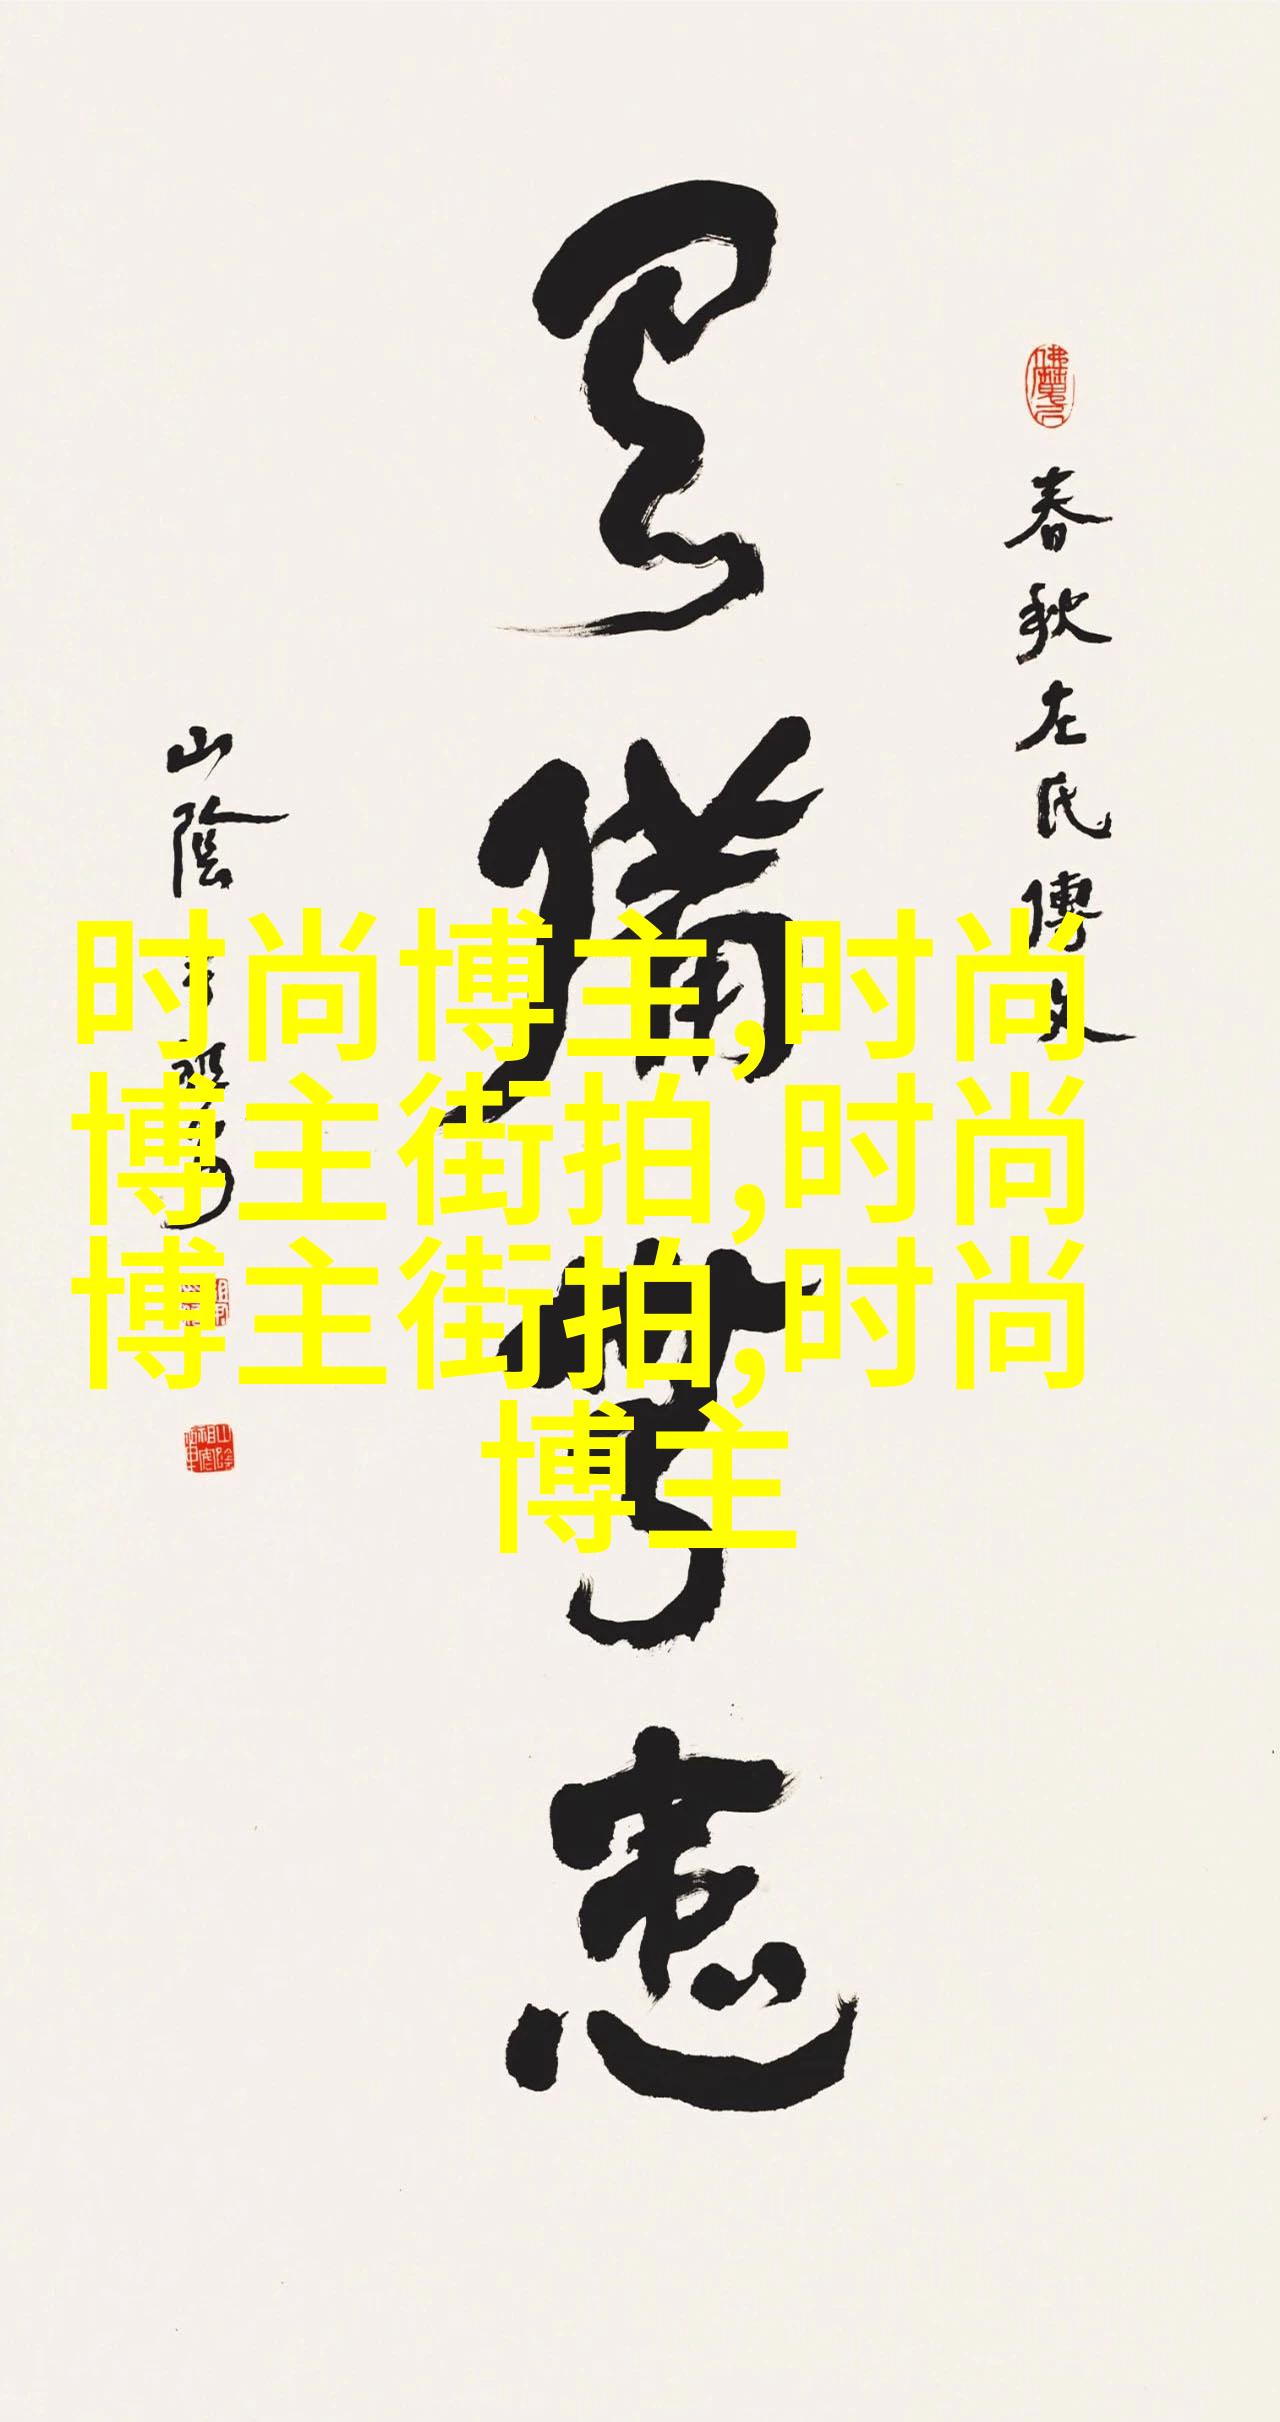 春秋左氏傳文
有備無患
山陰
时尚博主,时尚
博主街拍,时尚
博主街拍,时尚
博主